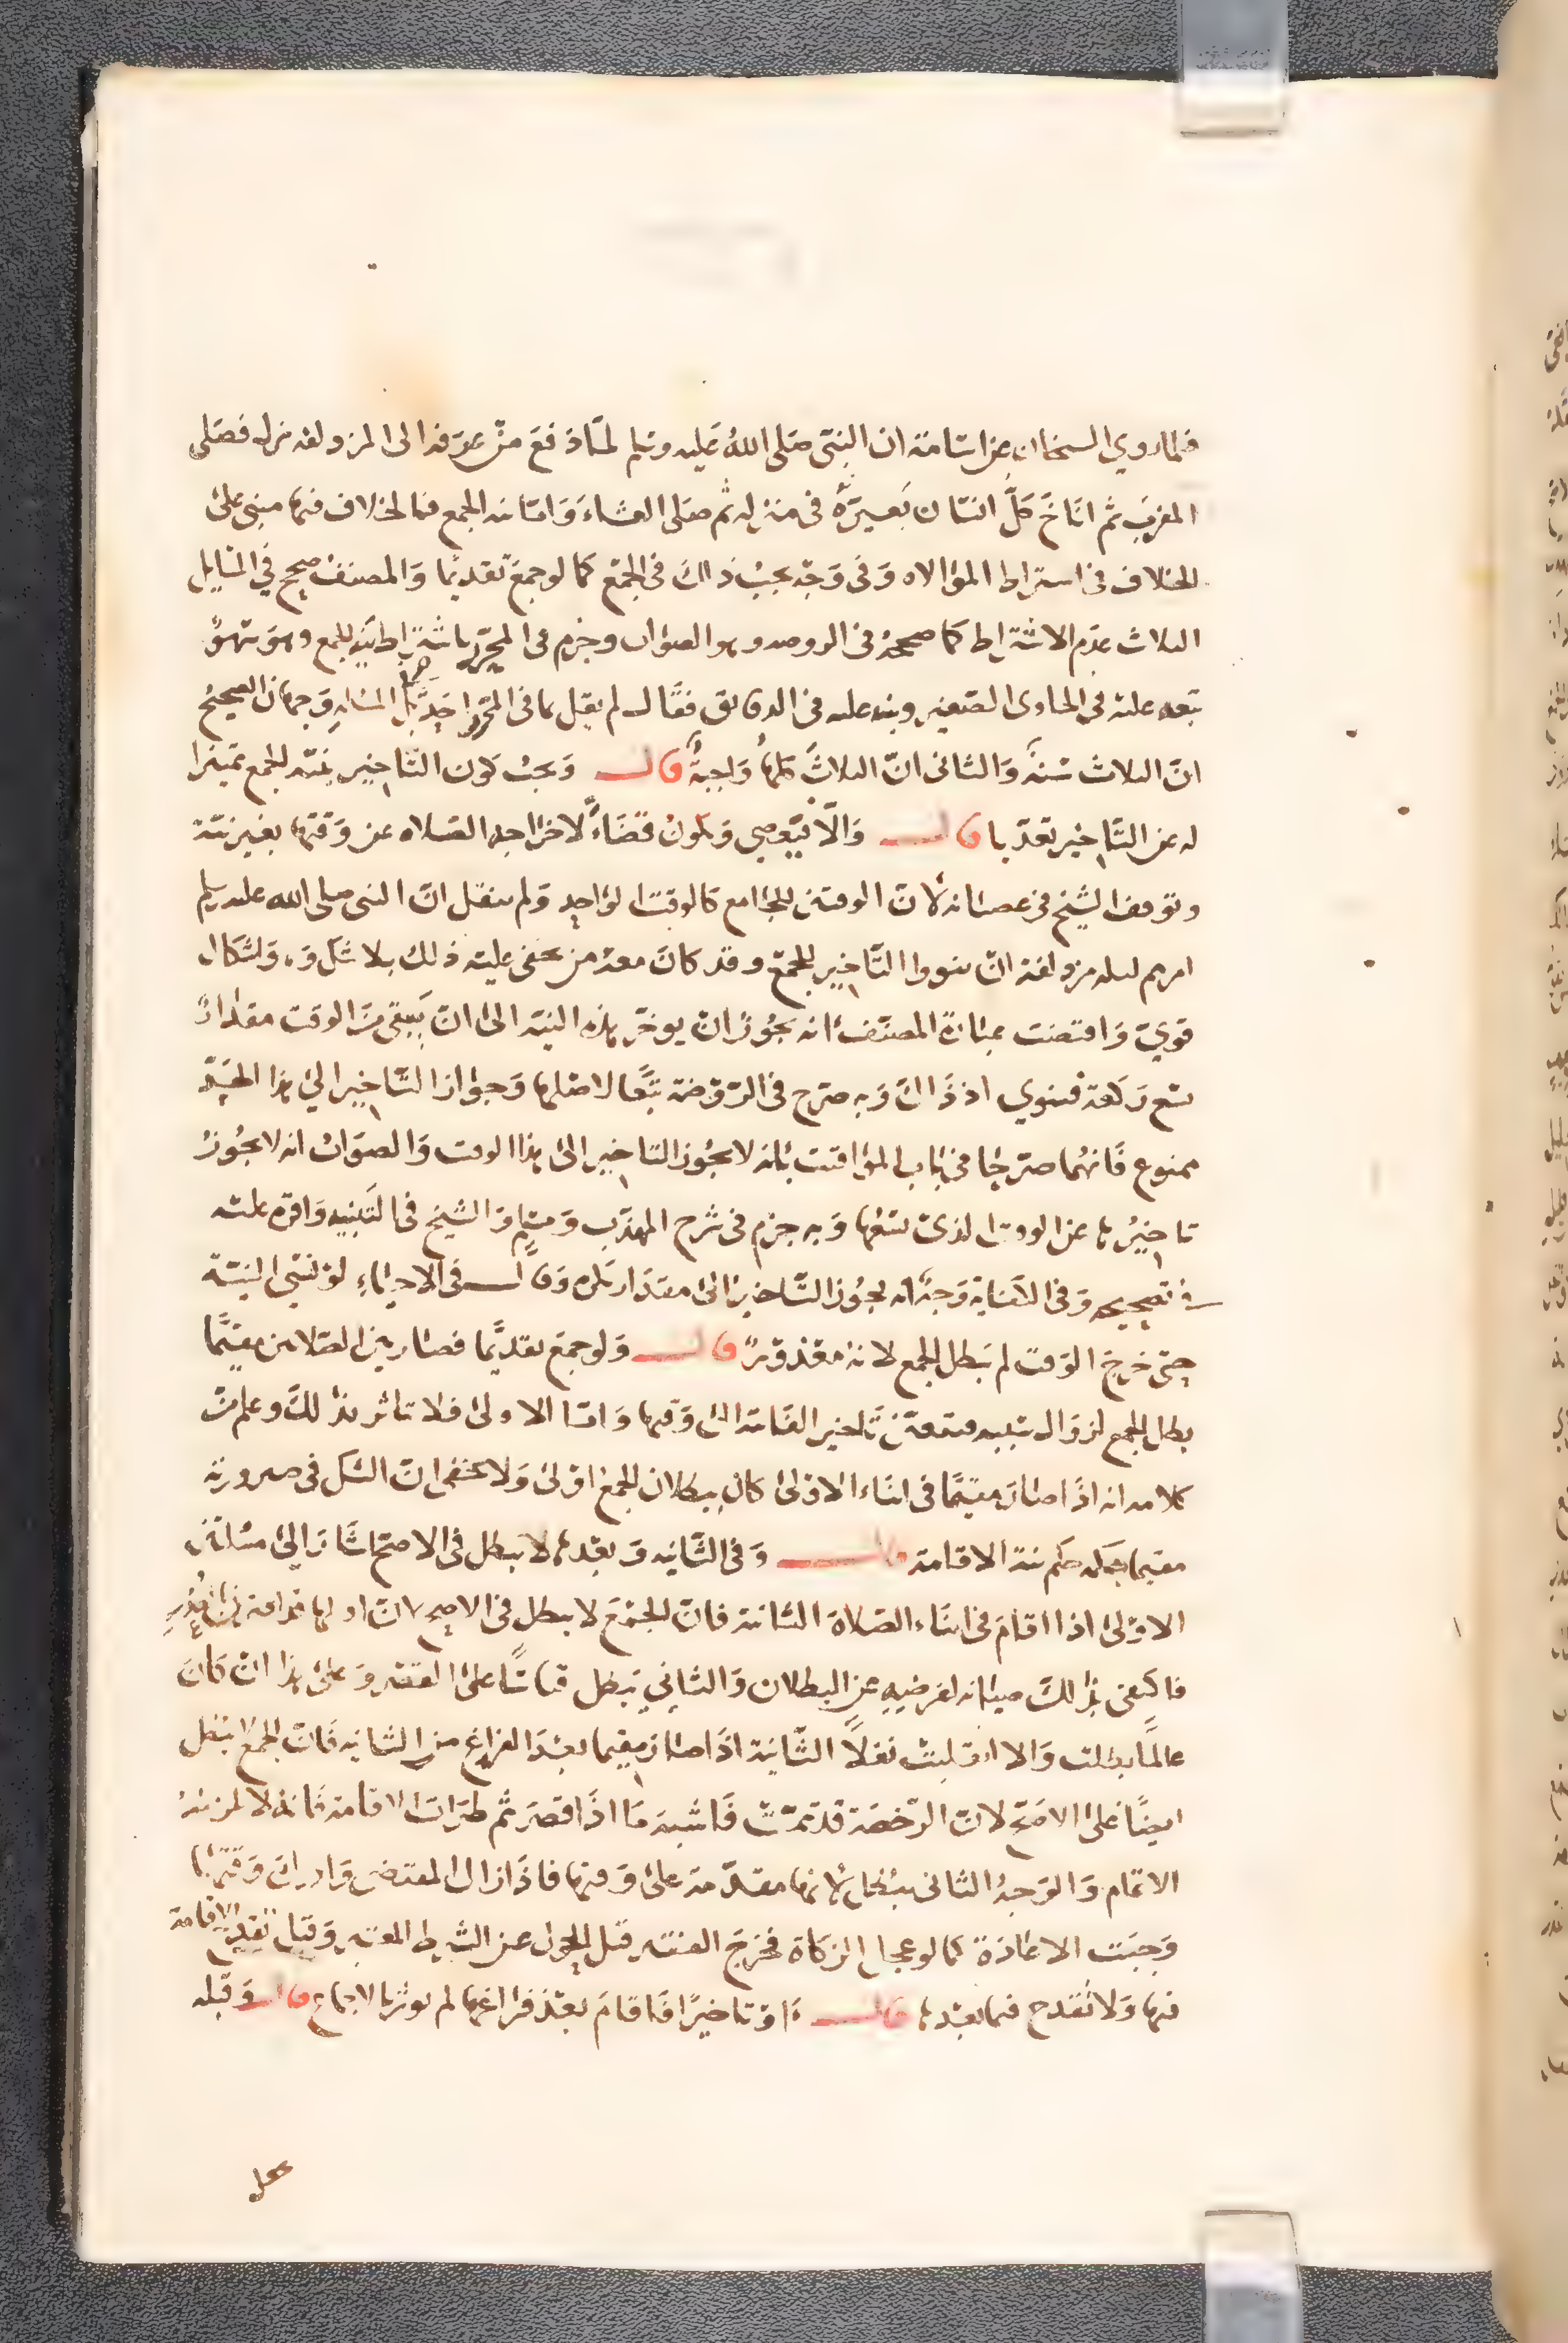 فلما روي الشيخان عن اسامة ان النبي صلى الله عليه وسلم لما دفع من عرفة الى المزدلفة نزل فصلى
المغرب ثم اناخ كل انسان بعيره في منزله ثم صلى العشاء واما نية الجمع فالخلاف فيها مبني على
الخلاف في اشتراط الموالاه وفي وجه يجب ذلك في الجمع كما لو جمع تقديما والمصنف صحح في المسايل
الثلاث عدم الاشتراط كما صححه في الروضه وهو الصواب وجزم في المحرر باشتراط نية الجمع وهو سهو
تبعه عليه في الحاوي الصغير ونبه عليه في الدقايق فقال لم يقل بما في المحرر احد بل المسالة وجهان الصحيح
ان الثلاث سنة والثاني ان الثلاث كلها واجبة قال ويجب كون التاخير بنية الجمع تميزا
له عن التاخير تعديا قال والا فيعصي ويكون قضاء لاخراجه الصلاه عن وقتها بغير نية
وتوقف الشيخ في عصيانه لان الوقتين للجامع كالوقت الواحد ولم ينقل ان النبي صلى الله عليه وسلم
امرهم ليلة مزدلفة ان ينووا التاخير للجمع وقد كان معه من يخفى عليه ذلك بلا شك واشكال
قوي واقتضت عبارة المصنف انه يجوز ان يوخر بهذه النية الى ان يبقى من الوقت مقدار
يسع ركعة فينوي اذ ذاك وبه صرح في الروضة تبعا لاصلها وجواز التاخير الى هذا الحد
ممنوع فانهما صرحا في باب المواقيت بانه لا يجوز التاخير الى هذا الوقت والصواب انه لا يجوز
تاخيرها عن الوقت الذي يسعها وبه جزم في شرح المهذب الشيخ في التنبيه واقره عليه
في تصحيحه وفي الكفاية وجه انه يجوز التاخير الى مقدار تكبيره وقال في الاحياء لو نسي النية
حتى خرج الوقت لم يبطل الجمع لانه معذور قال ولو جمع تقديما فصار بين الصلاتين مقيما
بطل الجمع لزوال سببه فيتعين تاخير الثانية الى وقتها واما الاولى فلا تتاثر بذلك وعلم من
كلامه انه اذا صار مقيما في اثناء الاولى كان بطلان الجمع اولى ولا يخفى ان الشك في صيرورته
مقيما حكمه حكم نية الاقامة قال وفي الثانيه وبعدها لا يبطل في الاصح اشار الى مسالتين
الاولى اذا اقام في اثناء الصلاة الثانية فان الجمع لا يبطل في الاصح لان
فاكتفي بذلك صيانة لفرضيه عن البطلان والثاني يبطل قياسا على القصر وعلى هذا ان كان
عالما بطلت والا انقلبت نفلا الثانية اذا صار مقيما بعد الفراغ من الثانيه فان الجمع لا يبطل
ايضا على الاصح لان الرخصة قد تمت فاشبه ما اذا قصر ثم طرات الاقامة فانه لا يلزمه
الاتمام والوجه الثاني يبطل لانها مقدمة على وقتها فاذا زال المقتضى وادرك وقتها
وجبت الاعادة كما لو عجل الزكاة فخرج الفقير قبل الحول عن الشرط المعتبر وقيل تقدح الاقامة
فيها ولا تقدح فيما بعدها قال او تاخيرا فاقام بعد فراغهما لم يوثر بالاجماع قال وقبله
يجعل